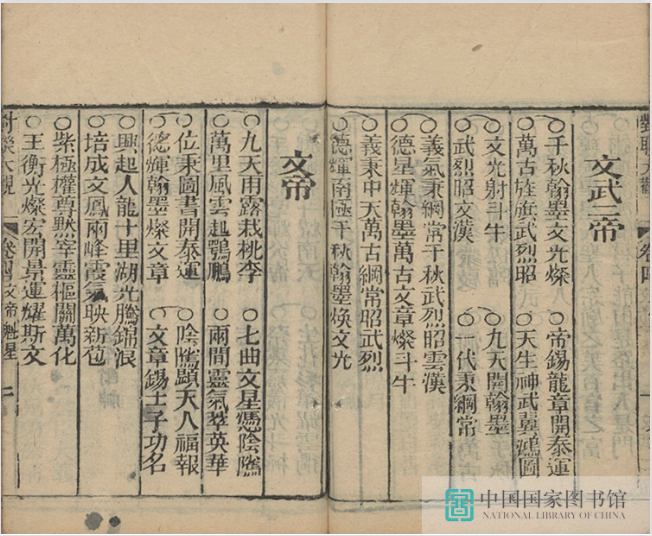 對聯大觀 卷四
文武二帝
千秋翰墨文光燦 帝錫龍章開泰運
萬古旌旗武烈昭 天生神武翼鴻圖
文光射斗牛 九天開翰墨
武烈昭文漢 一代秉綱常
義氣秉綱常千秋武烈昭雲漢
德星輝翰墨萬古文章燦斗牛
義秉中天萬古綱常昭武烈
德輝南極千秋翰墨煥文光
文帝
九天雨露栽桃李 七曲文星憑陰騭
萬里風雲起鶚鵬 兩間靈氣萃英華
位秉圖書開泰運 陰騭顯天人福報
德輝翰墨燦文章 文章錫士子功名
興起人龍十里湖光騰錦浪
培成文鳳兩峰霞氣映新苞
紫極權尊默宰靈樞關萬化
玉衡光燦宏開景運耀斯文
對聯大觀 卷四 文帝 魁星 二
中国国家图书馆
NATIONAL LIBRARY OF CHINA